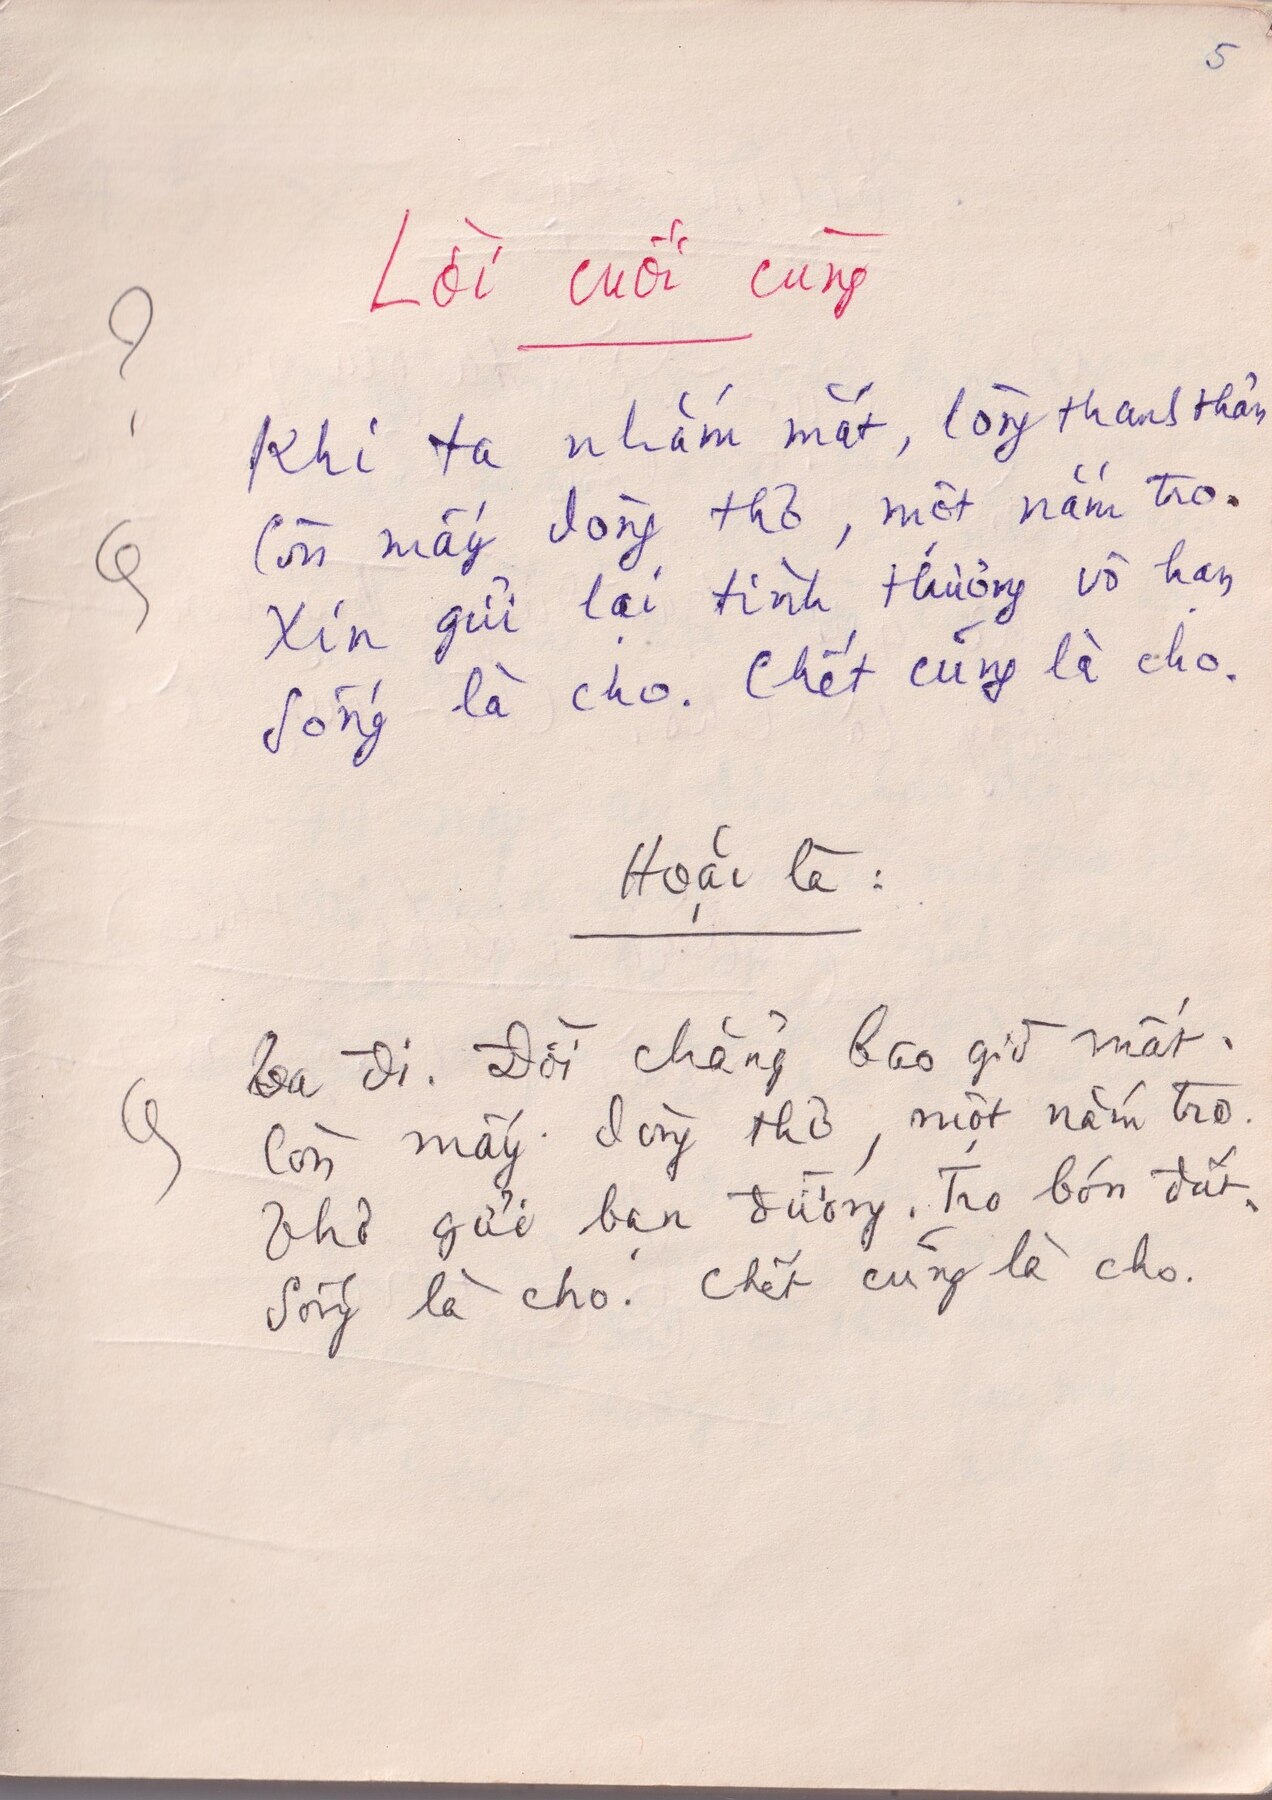 5
Lời cuối cùng
Khi ta nhắm mắt, lòng thanh thản
Còn mấy dòng thơ, một nắm tro.
Xin gửi lại tình thương vô hạn
Sống là cho. Chết cũng là cho.
Hoặc là:
Ta đi. Đời chẳng bao giờ mất.
Còn mấy dòng thơ, một nắm tro.
Thơ gửi bạn đường. Tro bón đất.
Sống là cho. Chết cũng là cho.